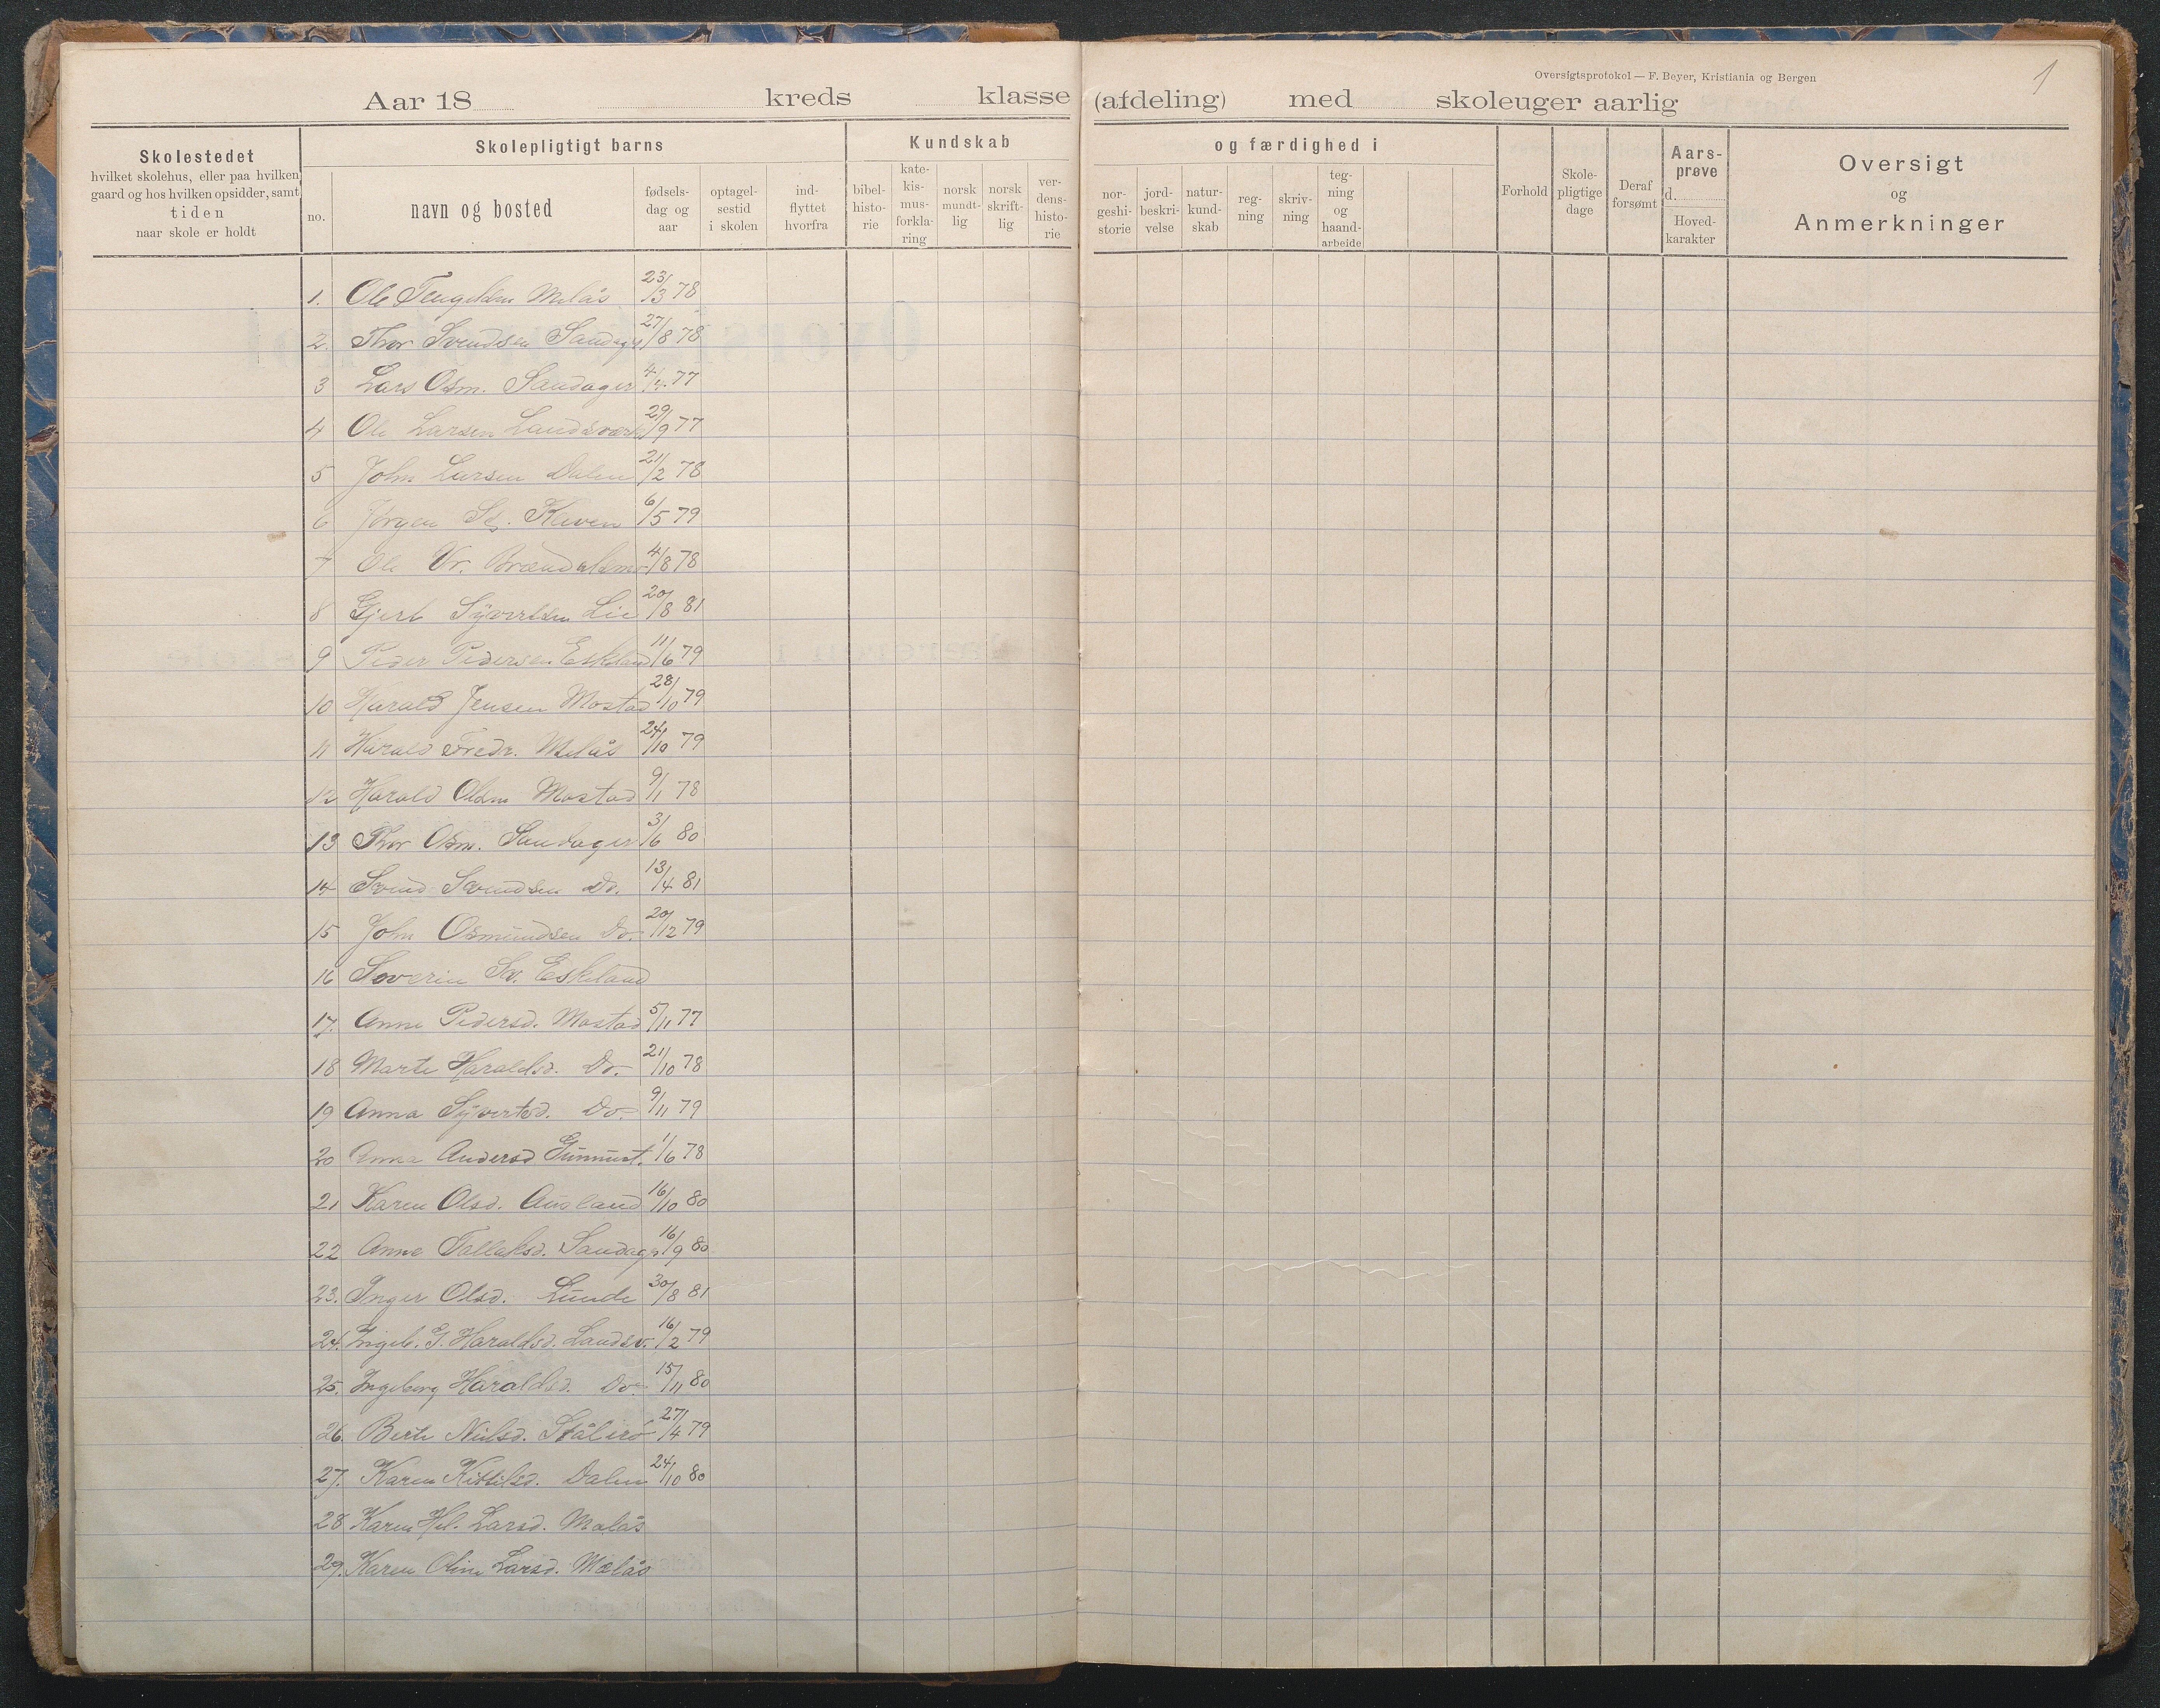 Oversigtsprotokol — F. Beyer, Kristiania og Bergen
1
Aar 18 kreds klasse (afdeling) med skoleuger aarlig
Skolestedet
hvilket skolehus, eller paa hvilken
gaard og hos hvilken opsidder, samt
tiden
naar skole er holdt
Skolepligtigt barns
no.
navn og bosted
fødsels-
dag og
aar
optagel-
sestid
i skolen
ind-
flyttet
hvorfra
Kundskab
bibel-
histo-
rie
kate-
kis-
mus-
forkla-
ring
norsk
mundt-
lig
norsk
skrift-
lig
ver-
dens-
histo-
rie
og færdighed i
nor-
geshi-
storie
jord-
beskri-
velse
natur-
kund-
skab
reg-
ning
skriv-
ning
teg-
ning
og
haand-
arbeide
Forhold
Skole-
pligtige
dage
Deraf
forsømt
Aars-
prøve
d.
Hoved-
karakter
Oversigt
og
Anmerkninger
1. Ole Melås 23/3 78
2. Thor Svendsen Sandag. 27/8 78
3 Lars Osm. Sandager 4/4 77
4 Ole Larsen Landsværk 29/9 77
5 John Larsen Dalen 21/2 78
6 Jørgen Kleven 6/5 79
7 Ole 4/8 78
8 Gjert Syvertsen Lie 20/8 81
9 Peder Pedersen Eskeland 11/6 79
10 Harald Jensen Mostad 28/10 79
11 Harald Fredr. Melås 24/10 79
12 Harald Olsen Mostad 9/1 78
13 Thor Osm. Sandager 3/6 80
14 Svend Svendsen Do. 13/4 81
15 John Osmundsen Do. 20/12 79
16 Soverin Sv. Eskeland
17. Anne Pedersd. Mostad 5/11 77
18 Marte Haraldsd. Do. 21/10 78
19 Anna Syvertsd. Do. 9/11 79
20 Anna Andersd 1/6 78
21 Karen Olsd. Ausland 16/10 80
22 Anne Tallaksd. Sandag. 16/9 80
23. Inger Olsd. Lunde 30/8 81
24. Ingeb. G. Haraldsd. Landsv. 16/2 79
25. Ingeborg Haraldsd. Do. 15/11 80
26. Berte Nielsd. 27/4 79
27. Karen Kittilsd. Dalen 24/10 80
28 Karen Hel. Larsd. Melås
29. Karen Oline Larsd. Melås